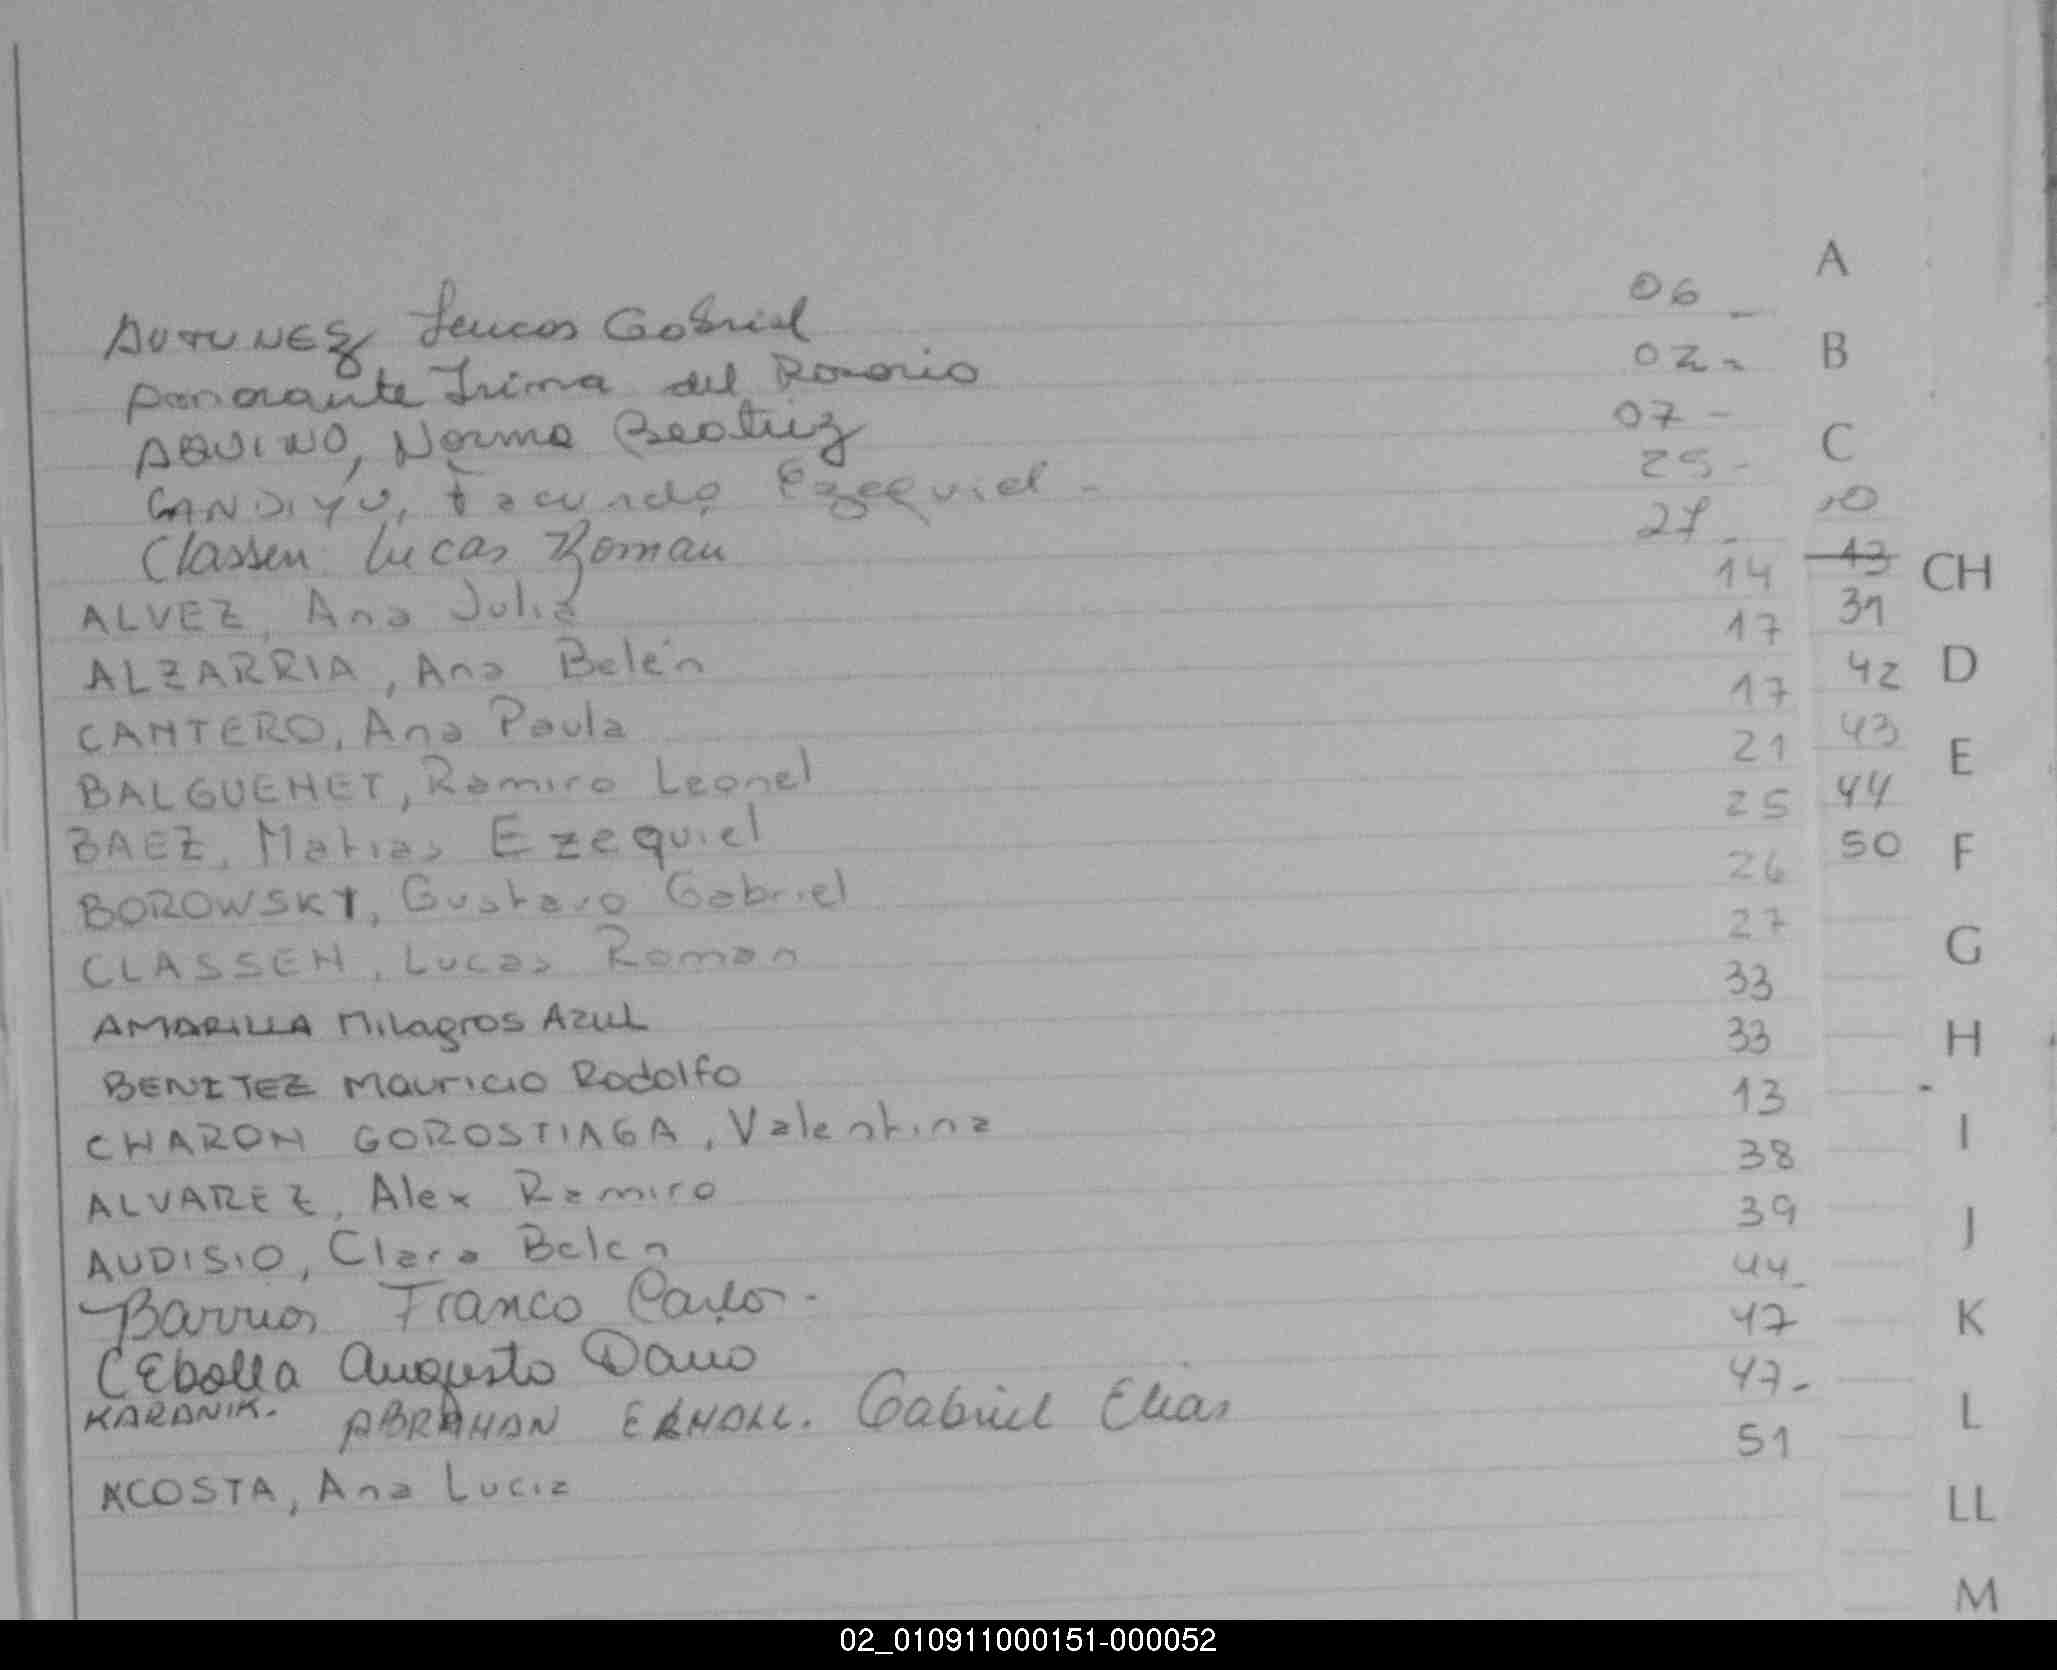 AUTUNEZ Leucos Gabriel 06 _
A
Irima del Rosario 02 -
B
AQUINO, Norma Beatriz 07 -
C
CANDIYU, Facundo Ezequiel - 25 -
10
Classen Lucas Roman 27 _
13
CH
ALVEZ, Ana Julia 14
31
ALZARRIA, Ana Belén 17
42
D
CANTERO, Ana Paula 17
43
E
BALGUEHET, Ramiro Leonel 21
44
BAEZ, Matias Ezequiel 25
50
F
BOROWSKY, Gustavo Gabriel 26
CLASSEN, Lucas Roman 27
G
AMARILLA Milagros Azul 33
BENITEZ Mauricio Rodolfo 33
H
CHARON GOROSTIAGA, Valentina 13
I
ALVAREZ, Alex Ramiro 38
AUDISIO, Clara Belen 39
J
Barrios Franco Carlos - 44 _
CEbolla Augusto Dario 47
K
KARANIK. ABRAHAN Gabriel Elias 47 -
L
ACOSTA, Ana Lucia 51
LL
M
02_010911000151-000052